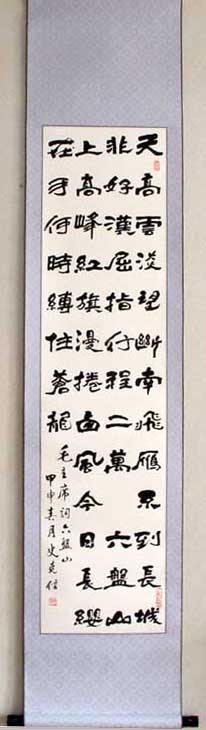 天高雲淡望斷南飛雁不到長城
非好漢屈指行程二萬六盤山
上高峰紅旗漫捲西風今日長纓
在手何時縛住蒼龍
毛主席詞六盤山
甲申春月史克信